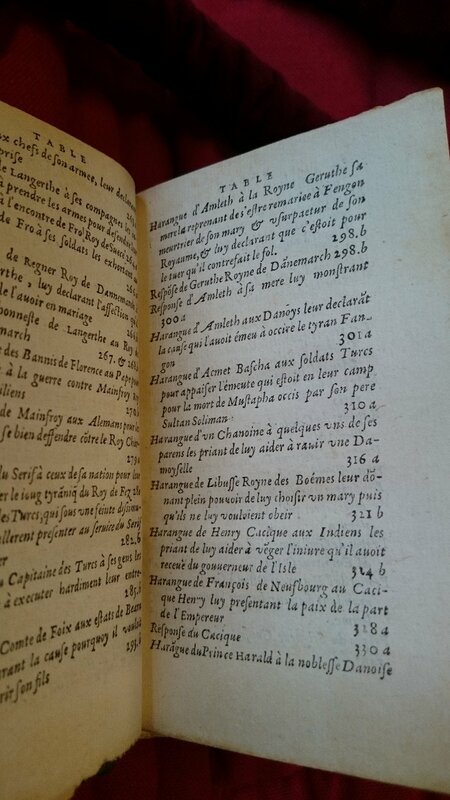 TABLE
ux chefs de son armee, leur declara
prise
de Langerthe à ses compagnes les
à prendre les armes pour deffendre
à l'encontre de Fro Roy de Suece
de Fro à ses soldats les exhortant
de Regner Roy de Dannemarch
rthe, luy declarant l'affection
de l'auoir en mariage
de Langerthe au Roy de
march 267. &
des Bannis de Florence au Pape
à la guerre contre Mainfroy
iliens
de Mainfroy aux Alemans pour les
se bien deffendre côtre le Roy Char
du Serif à ceux de sa nation pour
er le ioug tyrāniq du Roy de Fez
des Turcs, qui sous une feinte
ellerent presenter au seruice du Serif
er 282.b
Capitaine des Turcs à ses gens les
à executer hardiment leur entre-
Comte de Foix aux estats de Bearn
rant la cause pourquoy il vouloit
rir son fils
TABLE
Harangue d'Amleth à la Royne Geruthe sa
mere la reprenant de s'estre remariée à Fengon
meurtrier de son mary & vsurpateur de son
Royaume, & luy declarant que c'estoit pour
le tuer qu'il contrefait le fol. 298.b
Respōse de Geruthe Royne de Dānemarch 298.b
Response d'Amleth à sa mere luy monstrant
300 a
Harangue d'Amleth aux Danoys leur declarāt
la cause qui l'auoit émeu à occire le tyran Fan-
gon 301 a
Harangue d'Acmet Bascha aux soldats Turcs
pour appaiser l'émeute qui estoit en leur camp
pour la mort de Mustapha occis par son pere
Sultan Soliman 310 a
Harangue d'vn Chanoine à quelques vns de ses
parens les priant de luy aider à rauir vne Da-
moyselle 316 a
Harangue de Libusse Royne des Boémes leur dō-
nant plein pouuoir de luy choisir vn mary puis
qu'ils ne vouloient obeir 321 b
Harangue de Henry Cacique aux Indiens les
priant de luy aider à vēger l'iniure qu'il auoit
receuë du gouuerneur de l'Isle 324 b
Harangue de François de Neufbourg au Caci-
que Henry luy presentant la paix de la part
de l'Empereur 328 a
Response du Cacique 330 a
Harāgue du Prince Harald à la noblesse Danoise